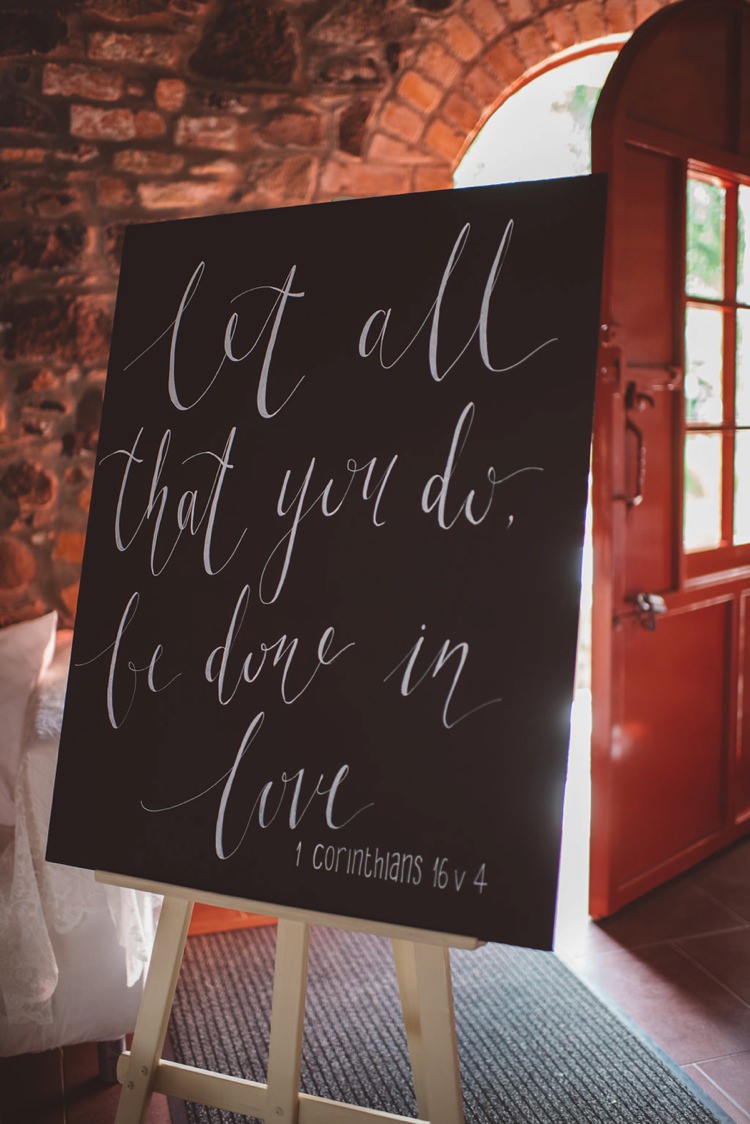 let all
that you do,
be done in
love
1 corinthians 16 v 4